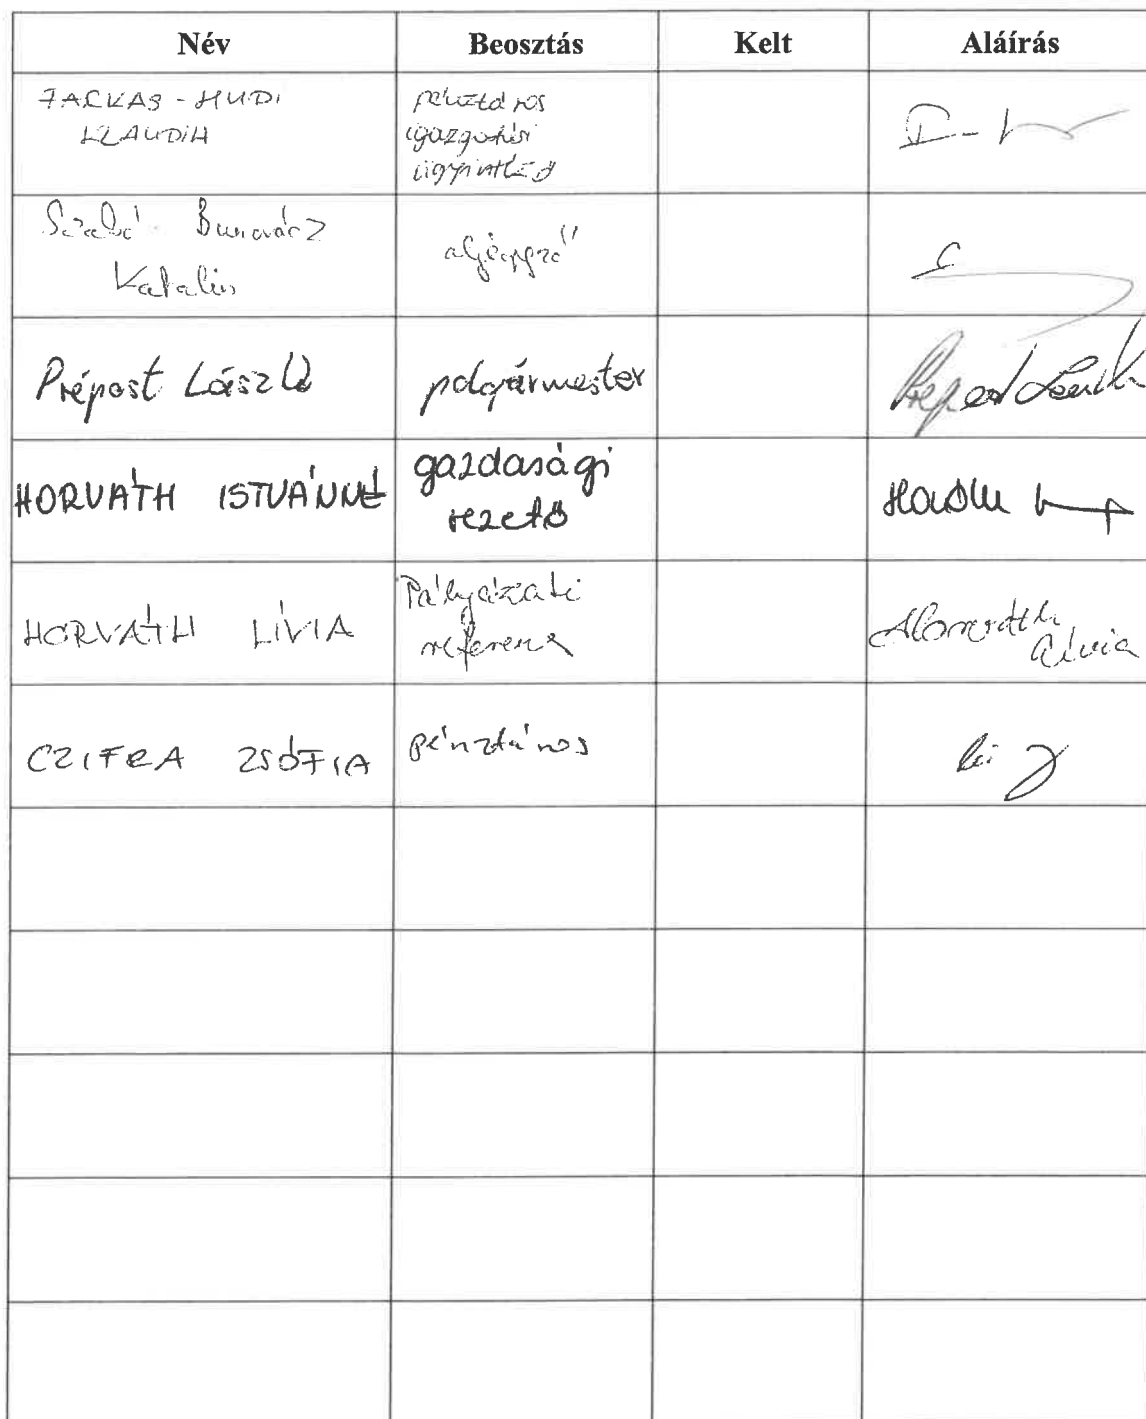 Név Beosztás Kelt Aláírás
FARKAS - HUDI
KLAUDIA
pénztáros
igazgatási
ügyintéző
Szabó
Katalin
aljegyző
Prépost László polgármester Prépost László
HORVÁTH ISTVÁNNÉ
gazdasági
vezető
HORVÁTH LÍVIA
Pályázati
referens
Horváth
Lívia
CZIFRA ZSÓFIA pénztáros